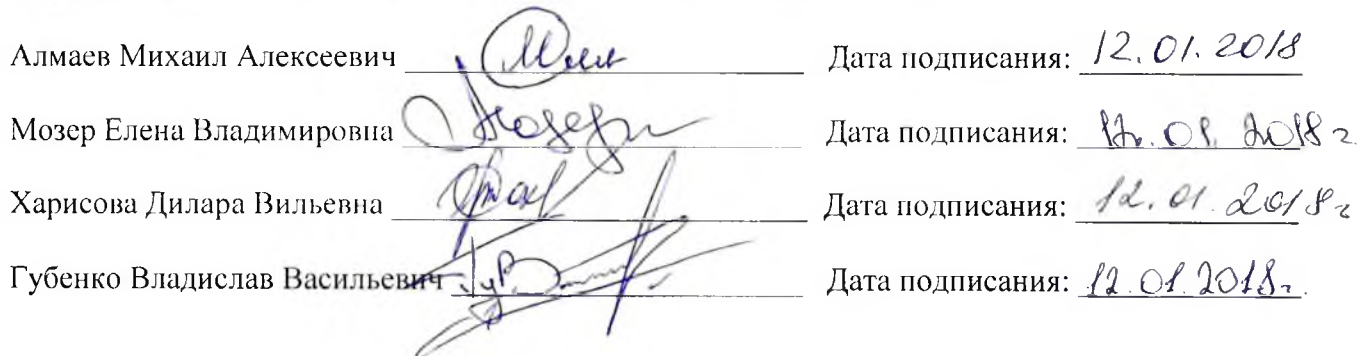 Алмаев Михаил Алексеевич Дата подписания: 12.01.2018
Мозер Елена Владимировна Мозер Дата подписания: 12.01.2018 г
Харисова Дилара Вильевна Дата подписания: 12.01.2018 г
Губенко Владислав Васильевич Дата подписания: 12.01.2018г.